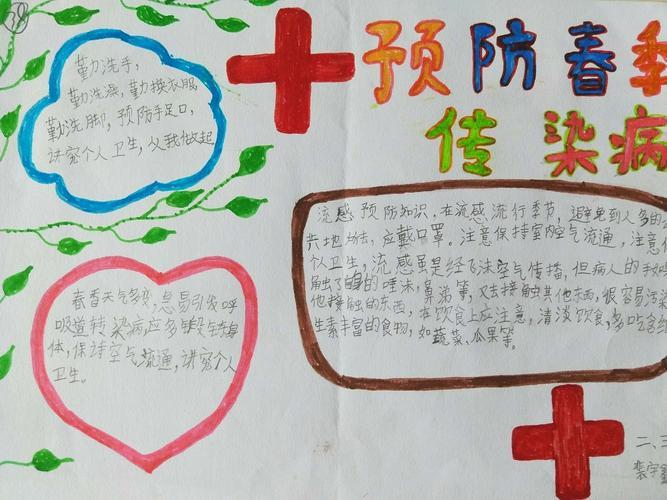 38
预防春季
传染病
勤洗手,
勤洗澡,勤换衣服
勤洗脚,预防手足口,
讲究个人卫生,从我做起
流感预防知识,在流感流行季节,避免到人多的公
共地场去,应戴口罩。注意保持室内空气流通,注意
个人卫生,流感虽是经飞沫空气传播,但病人的手如
触了的唾沫,鼻涕等,又去接触其他东西,很容易污染
他接触的东西,在饮食上应注意,清淡饮食,多吃含
生素丰富的食物,如蔬菜、瓜果等。
春季天气多变,易引发呼
吸道转染病应多锻身
体,保诗空气流通,讲究个人
卫生。
二、三
裴宇